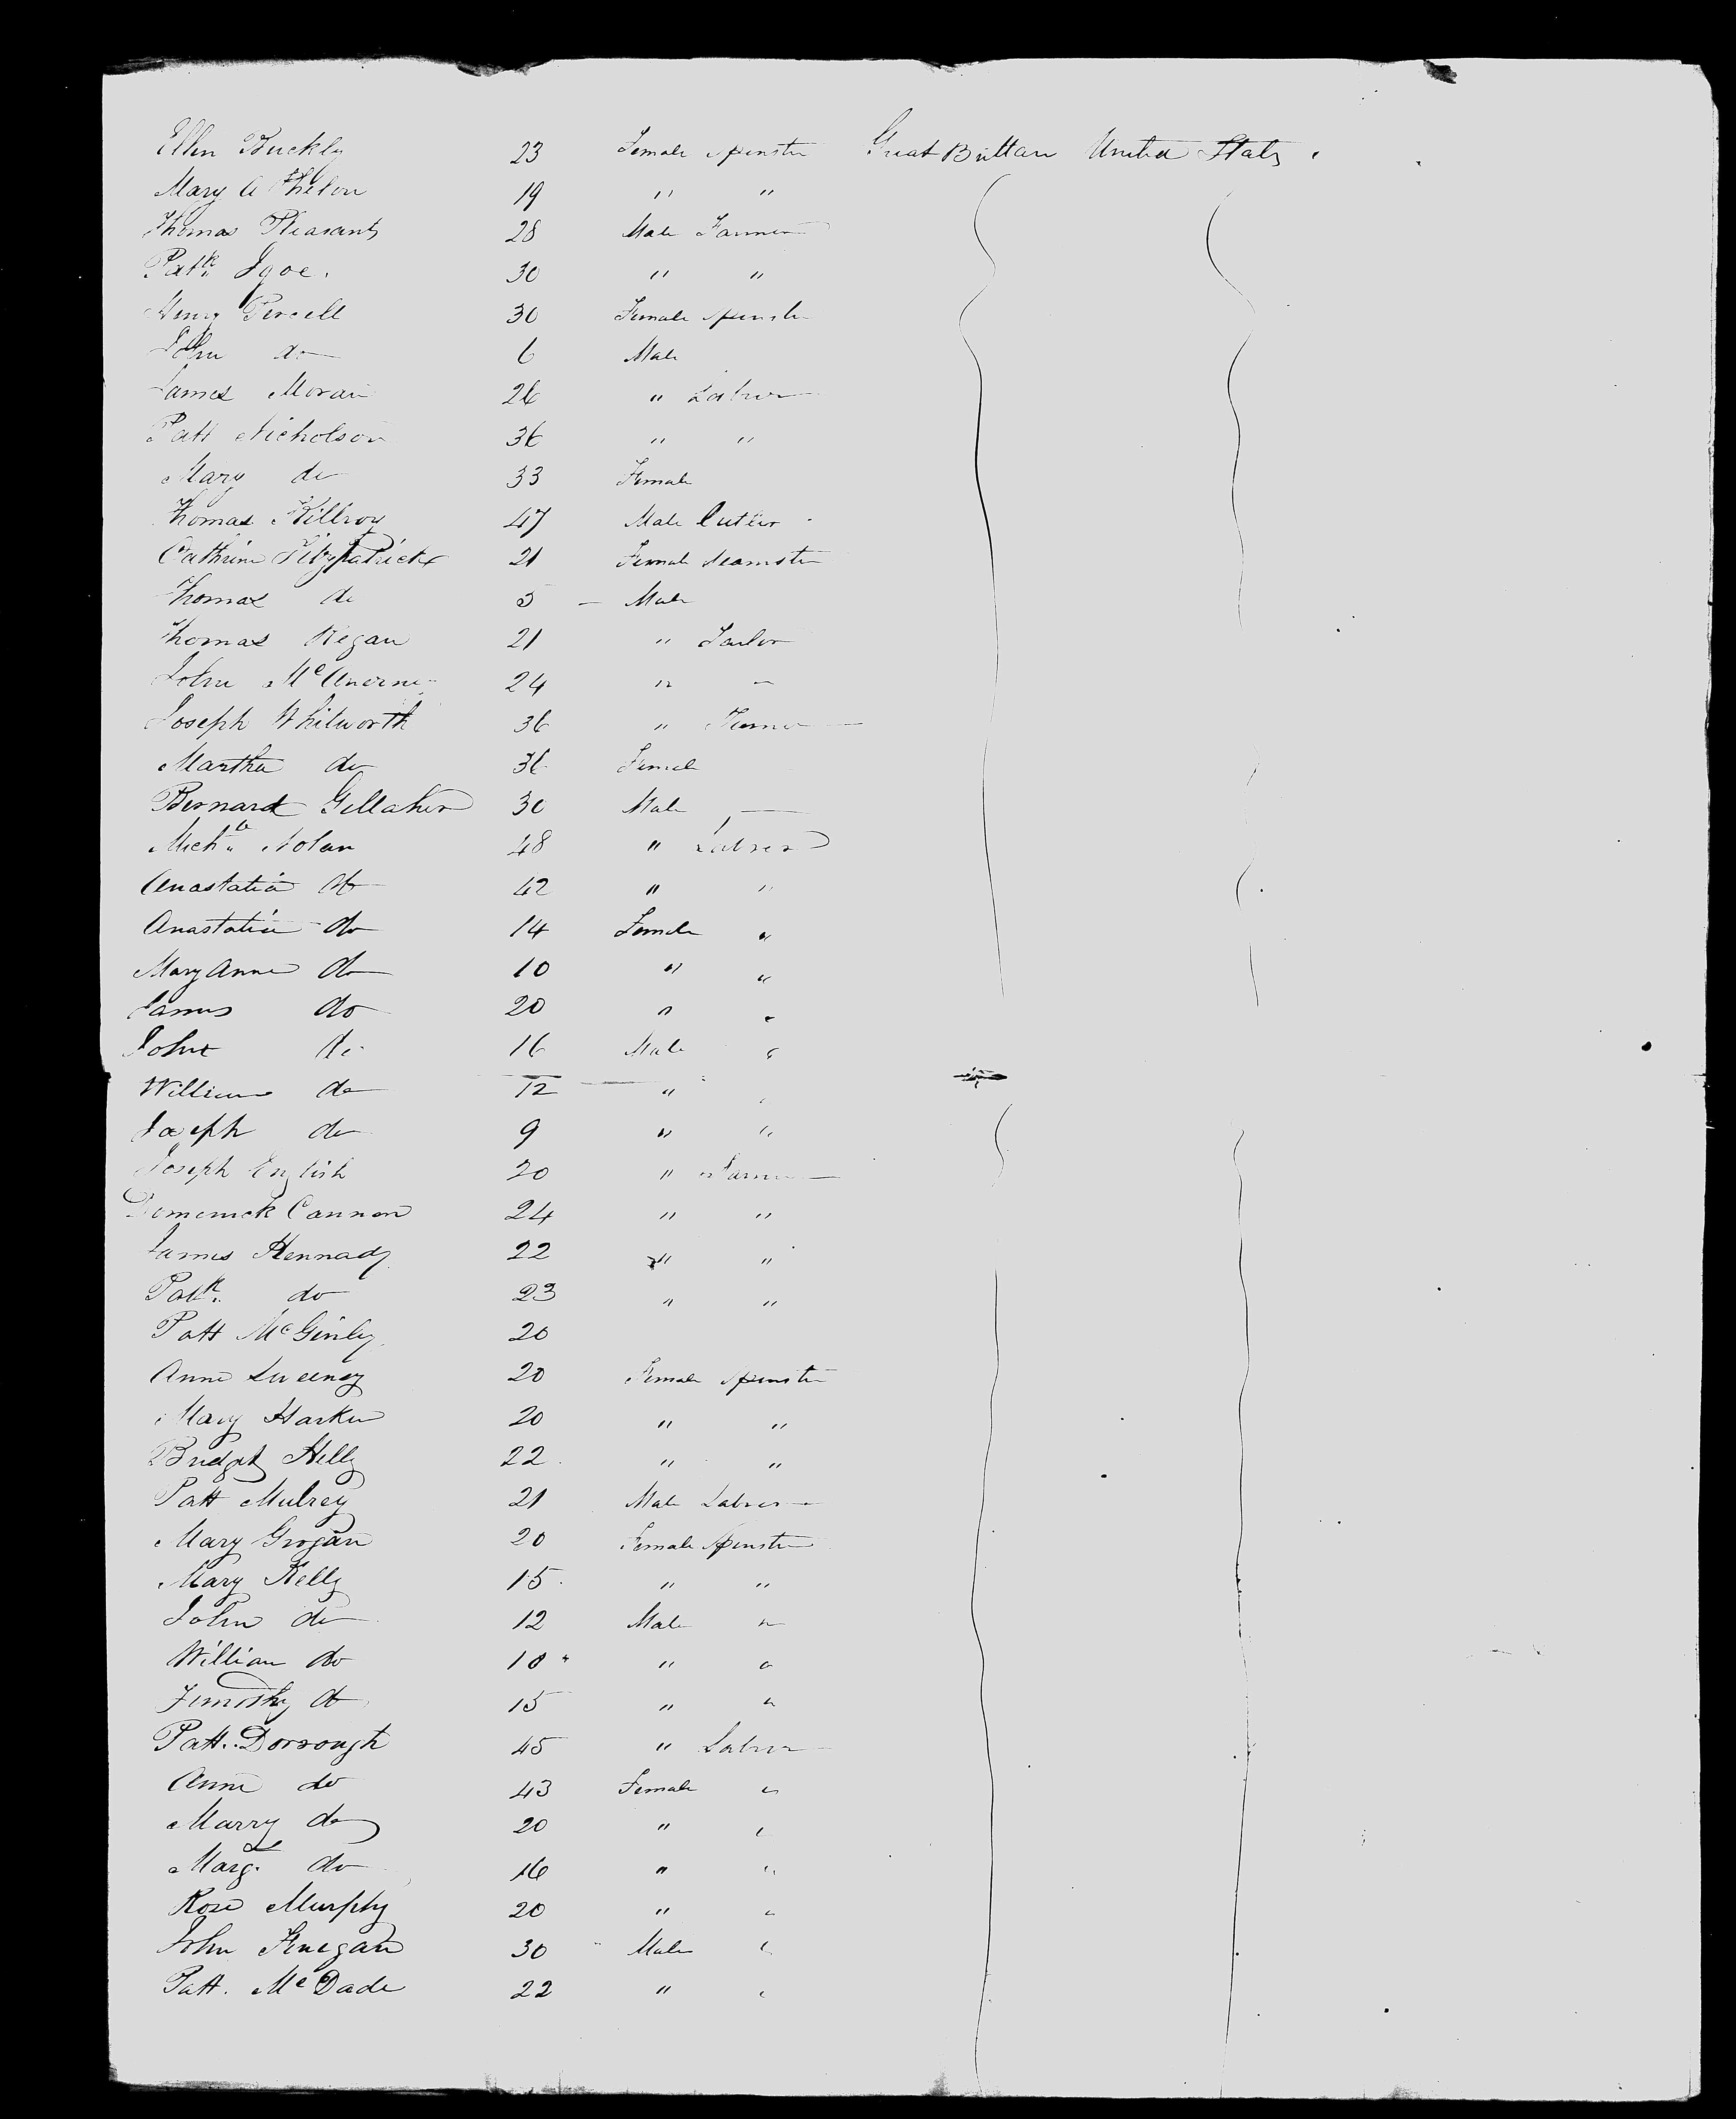 Ellen Buckly 23 Female Spinster Great Brittan United States
Mary A Phelon 19 " "
Thomas Pleasants 28 Male Farmer
Patk Igoe. 30 " "
Henry Percell 30 Female Spinster
John do 6 Male
James Moran 26 " Labrer
Patt Nicholson 36 " "
Mary do 33 Female
Thomas Killroy 47 Male Cutler
Cathrine Fitzpatrick 21 Female Seamster
Thomas do 5 - Male
Thomas Regan 21 " Tailor
John 24 " -
Joseph Whitworth 36 " Farmer
Martha do 36 Female
Bernard Gellaher 30 Male —
Michl Nolan 48 " Labrer
Anastatia do 42 " "
Anastatia do 14 Female "
Mary Anne do 10 " "
James do 20 " "
John do 16 Male "
William do 12 " "
Joseph do 9 " "
Joseph English 20 " Farmer
Domenick Cannon 24 " "
James Kennady 22 " "
Patk. do 23 " "
Patt McGinley 20
Anne Sweeney 20 Female Spinster
Mary Harkin 20 " "
Bridget Kelly 22 " "
Patt Mulrey 21 Male Labrer
Mary Grogan 20 Female Spinster
Mary Kelly 15 " "
John do 12 Male "
William do 10 " "
Timothy do 15 " "
Patt. Dorrough 45 " Labrer
Anne do 43 Female "
Marry do 20 " "
Margt do 16 " "
Rose Murphy 20 " "
John Finegan 30 Male "
Patt. McDade 22 " "